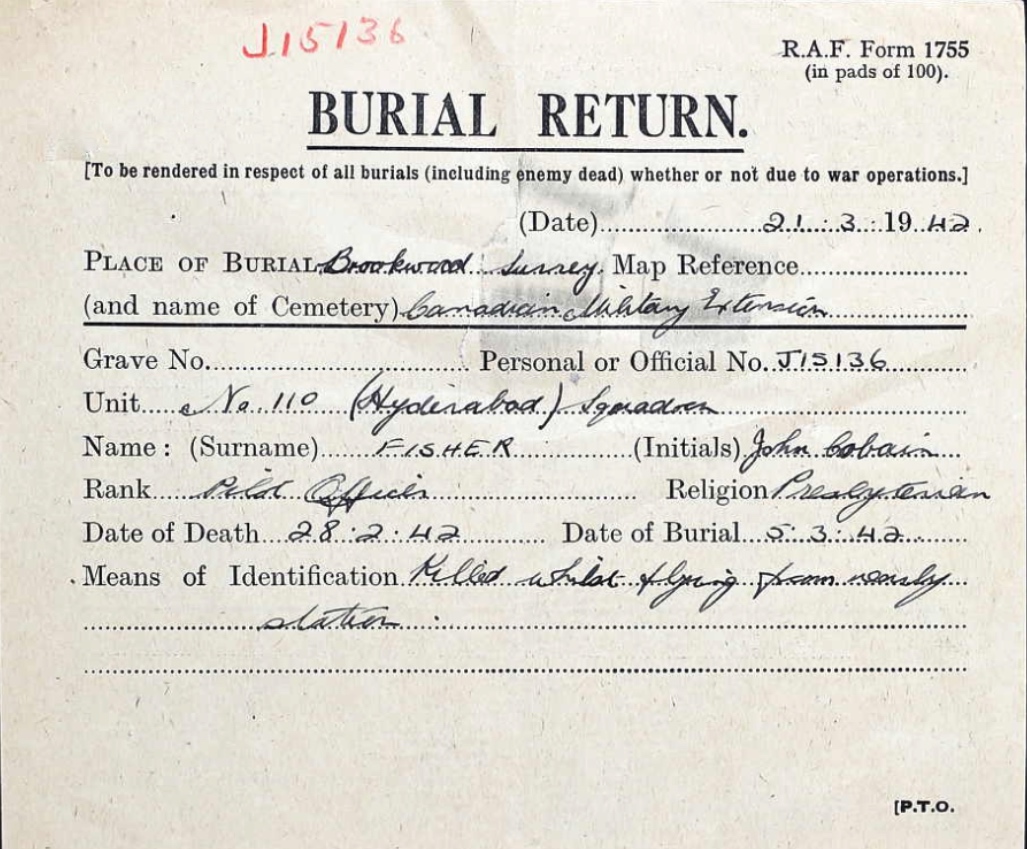 J15136
R.A.F. Form 1755
(in pads of 100).
BURIAL RETURN.
[To be rendered in respect of all burials (including enemy dead) whether or not due to war operations.]
(Date) 21 : 3 : 1942.
PLACE OF BURIAL Brookwood Surrey. Map Reference
(and name of Cemetery) Canadian Military Extension
Grave No. Personal or Official No. J15136
Unit No. 110 (Hyderabad) Squadron
Name: (Surname) FISHER (Initials) John Cobain
Rank Pilot Officer Religion Presbyterian
Date of Death 28 : 2 : 42 Date of Burial 5 : 3 : 42
Means of Identification Killed whilst flying from nearby
station
[P.T.O.